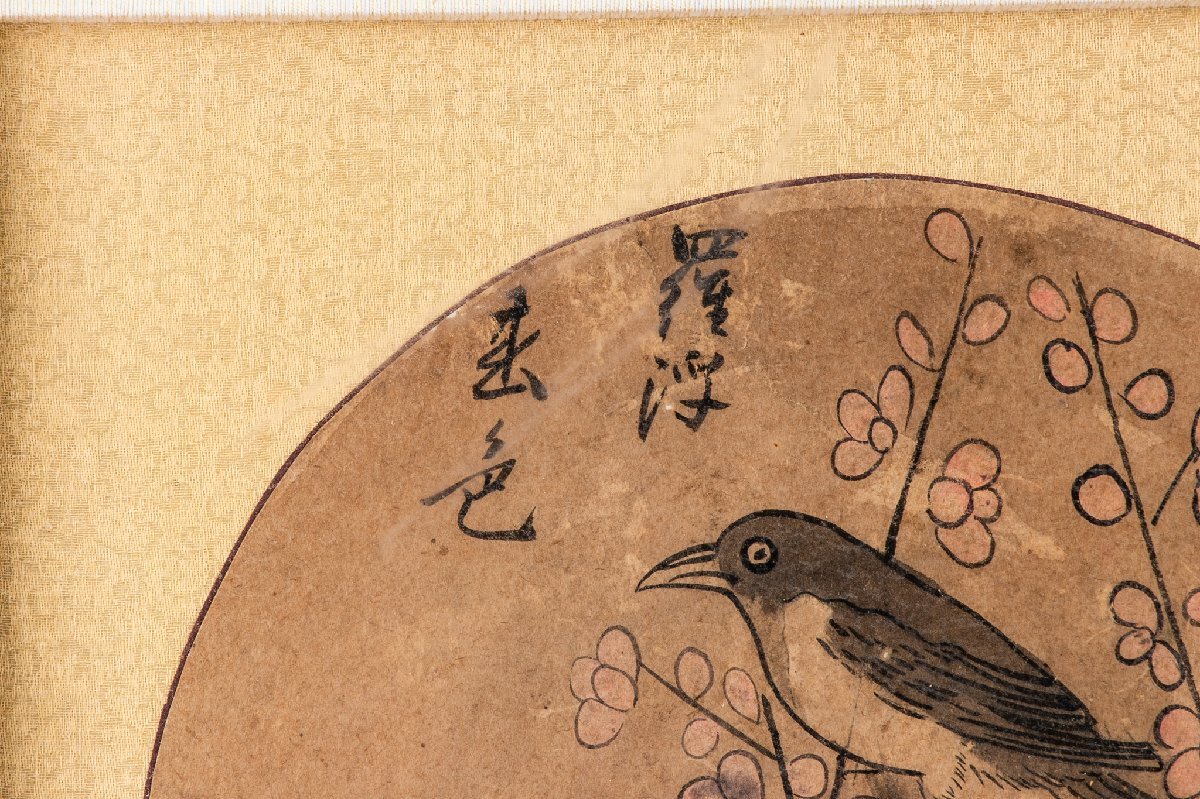 羅浮
春色